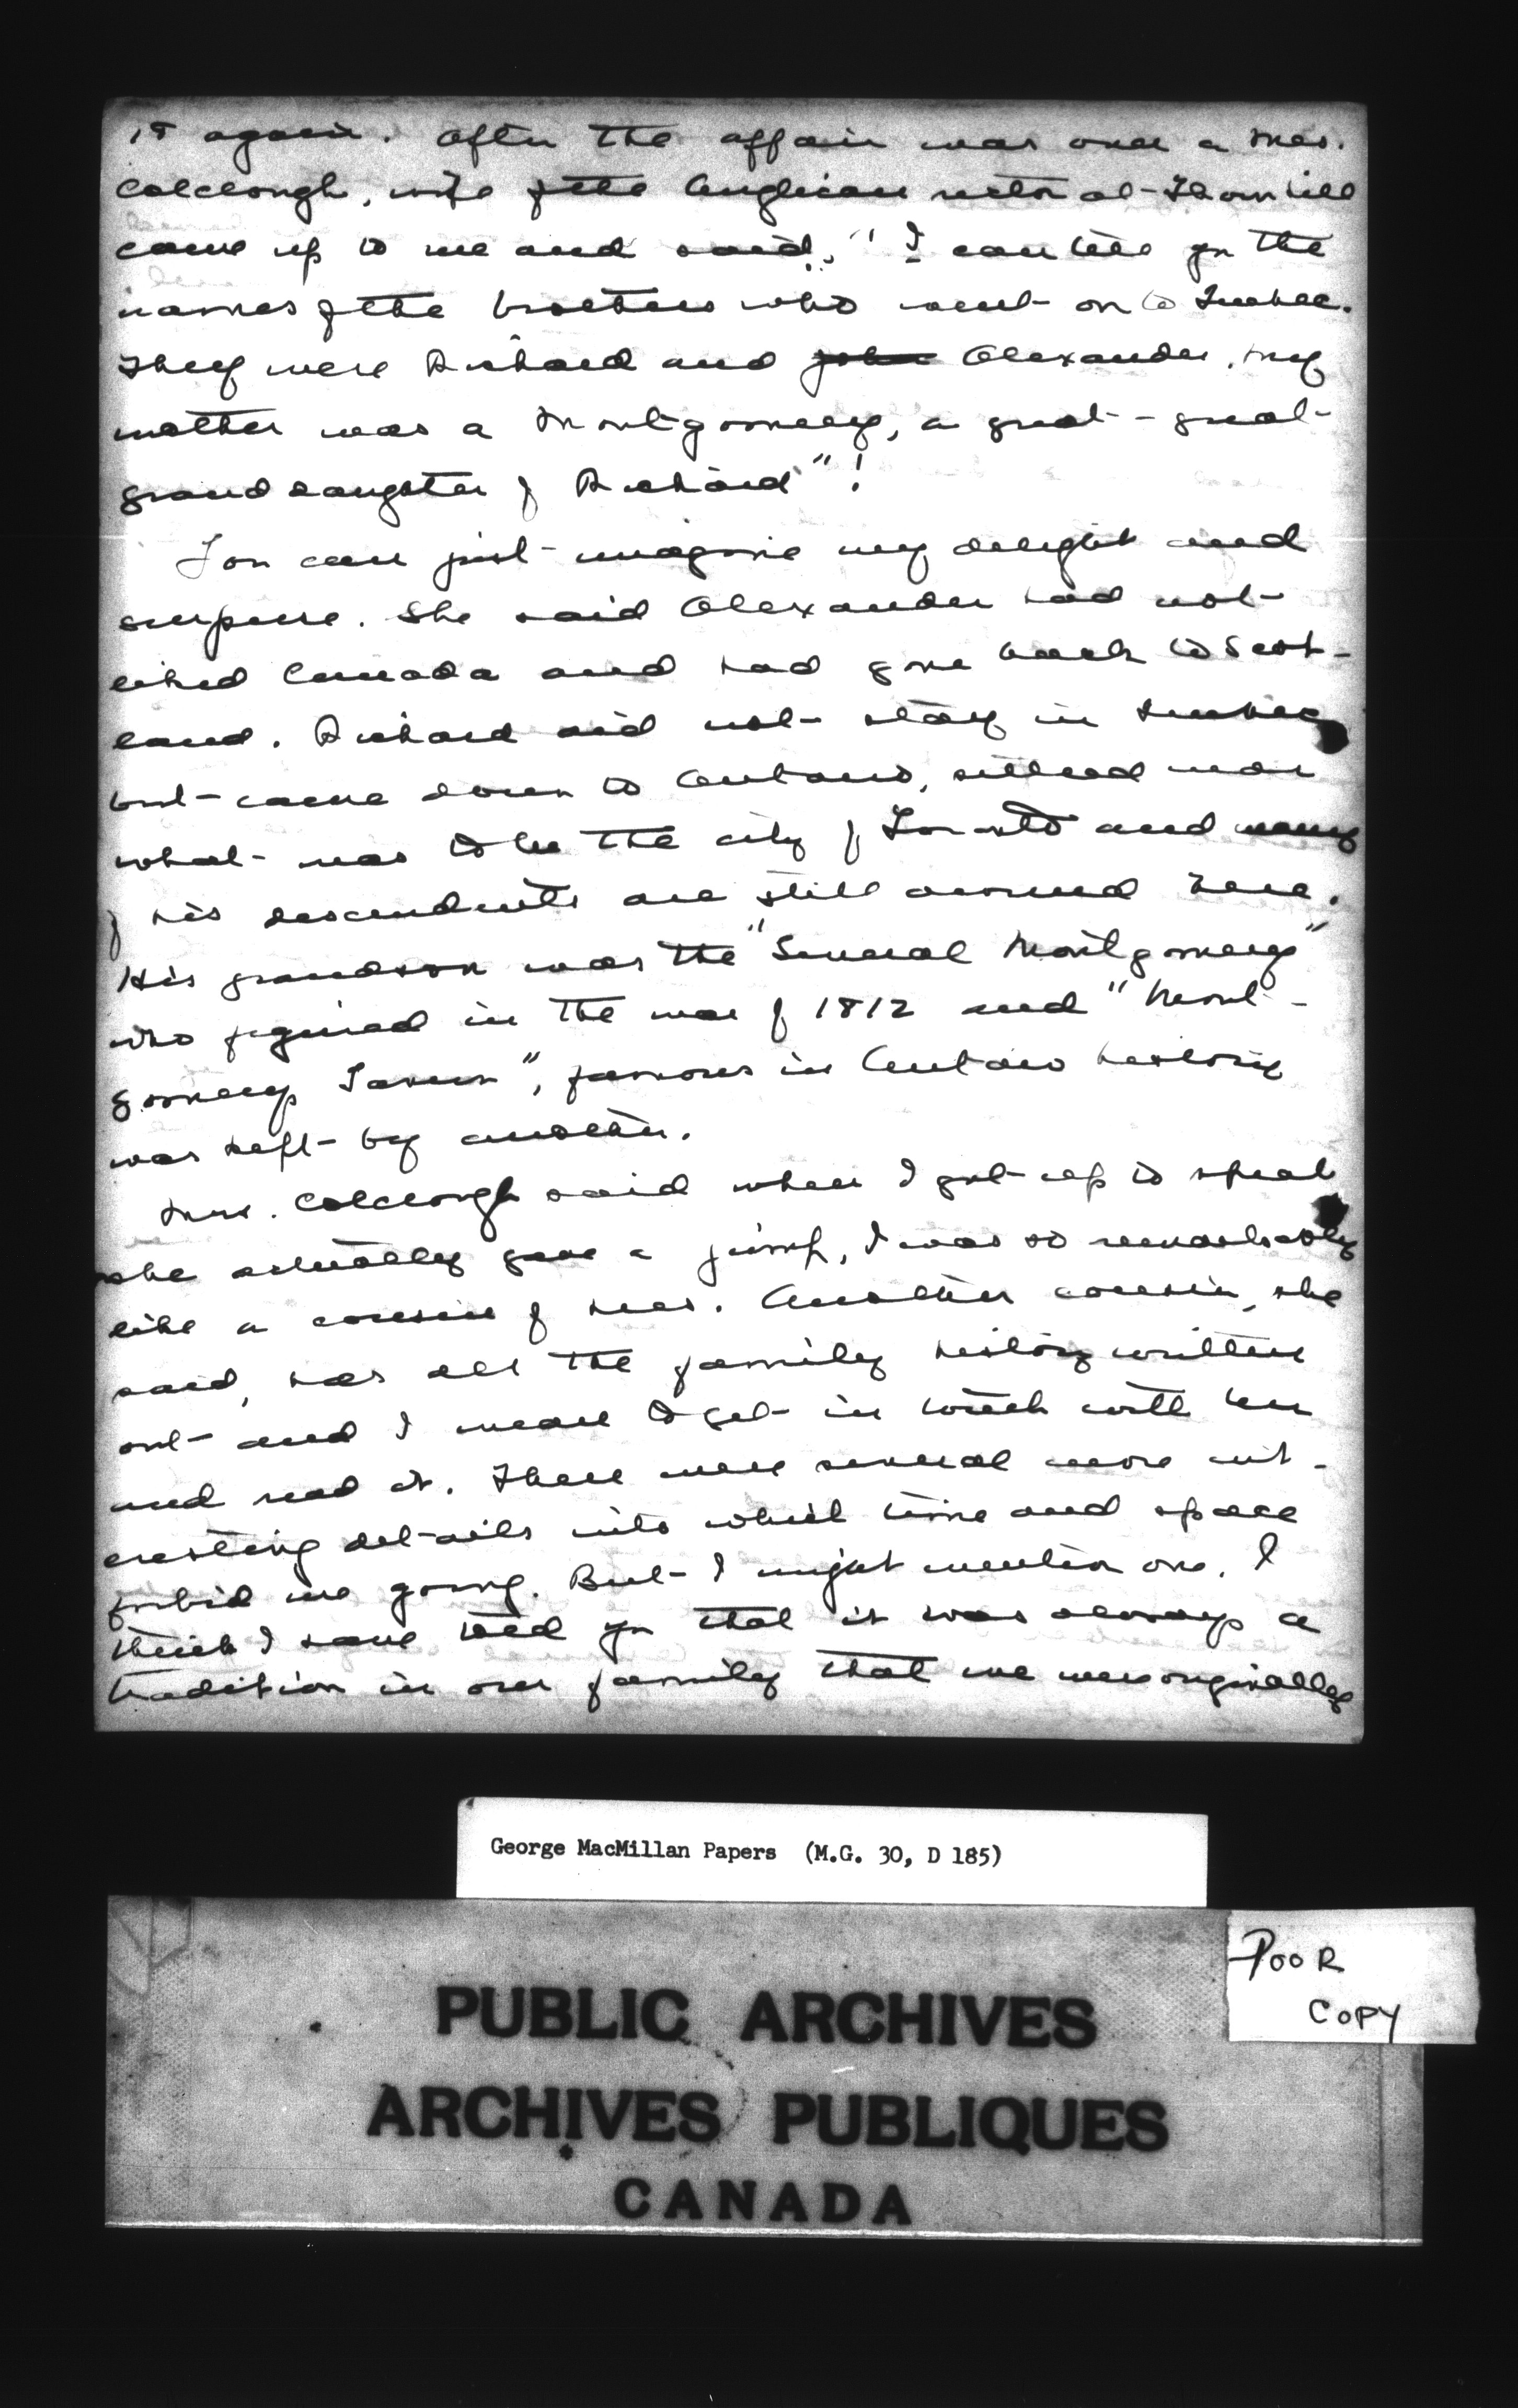 it again. After the affair was over a Mrs.
Colclough, wife of the Anglican rector at Thornhill
came up to me and said, "I can tell you the
names of the brothers who went on to Quebec.
They were Richard and John Alexander. My
mother was a Montgomery, a great-great-
granddaughter of Richard"!
You can just imagine my delight and
surprise. She said Alexander had not
liked Canada and had gone back to Scot-
land. Richard did not stay in Quebec
but came down to Ontario, settled near
what was to be the city of Toronto and many
of his descendants are still around here.
His grandson was the "General Montgomery"
who figured in the war of 1812 and "Mont-
gomery Tavern", famous in Ontario history
was kept by another.
Mrs. Colclough said when I got up to speak
she actually gave a jump, I was so remarkably
like a cousin of hers. Another cousin, she
said, has all the family history written
out and I mean to get in touch with her
and read it. There were several more int-
eresting details into which time and space
forbid me going. But I might mention one. I
think I have told you that it was always a
tradition in our family that we were originally
George MacMillan Papers (M.G. 30, D 185)
POOR
COPY
PUBLIC ARCHIVES
ARCHIVES PUBLIQUES
CANADA